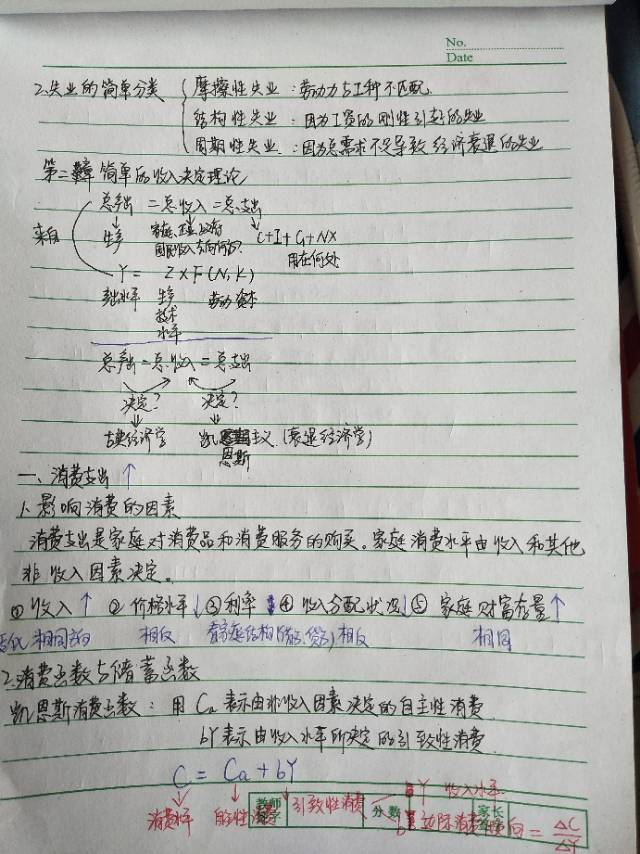 No.
Date
2.失业的简单分类 { 摩擦性失业：劳动力与工种不匹配.
结构性失业：因为工资的刚性引起的失业
周期性失业：因为总需求不足导致经济衰退的失业
第二章 简单的收入决定理论
总产出 = 总收入 = 总支出
来自 生产 家庭、企业、政府 C+I+G+NX
国民收入流向何方? 用在何处
Y = Z×F(N,K)
产出水平 生产 劳动 资本
技术
水平
总产出 = 总收入 = 总支出
决定? 决定?
古典经济学 凯恩斯主义 (衰退经济学)
一、消费支出 ↑
1.影响消费的因素
消费支出是家庭对消费品和消费服务的购买。家庭消费水平由收入和其他
非收入因素决定。
①收入↑ ②价格水平↓ ③利率 ④收入分配状况↓ ⑤家庭财富存量↑
相同方向 相反 看家庭结构 相反 相同
2.消费函数与储蓄函数
凯恩斯消费函数：用 Ca 表示由非收入因素决定的自主性消费
bY 表示由收入水平所决定的引致性消费
C = Ca + bY
消费水平 自主性消费 引致性消费 Y 收入水平
b 边际消费倾向 = ΔC/ΔY
教师签字 分数 家长